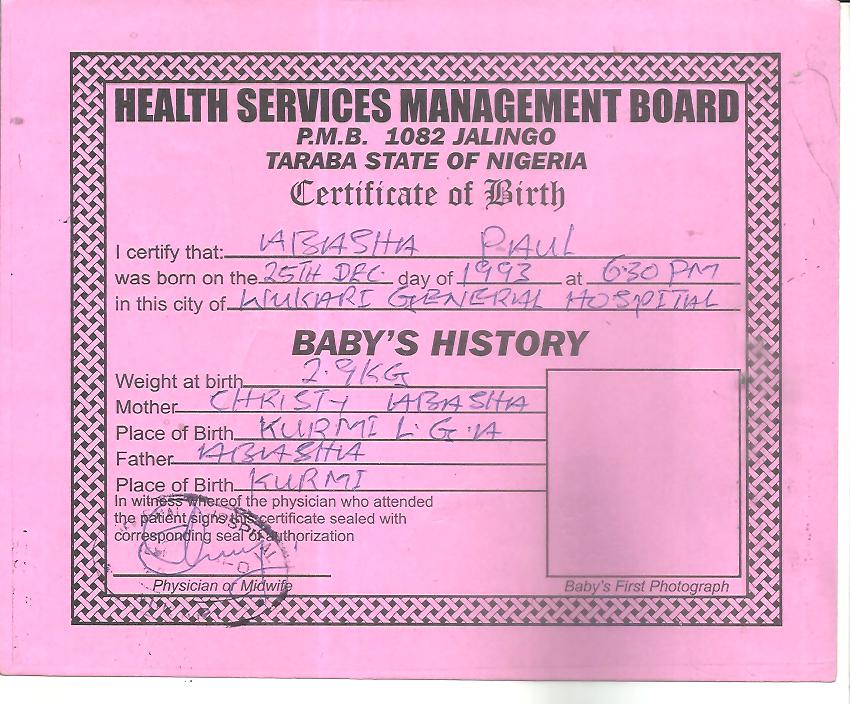 HEALTH SERVICES MANAGEMENT BOARD
P.M.B. 1082 JALINGO
TARABA STATE OF NIGERIA
Certificate of Birth
I certify that: ABASHA PAUL
was born on the 25TH DEC. day of 1993 at 6:30 PM
in this city of WUKARI GENERAL HOSPITAL
BABY'S HISTORY
Weight at birth 2.9KG
Mother CHRISTY ABASHA
Place of Birth KURMI L.G.A
Father ABASHA
Place of Birth KURMI
In witness whereof the physician who attended
the patient signs this certificate sealed with
corresponding seal of authorization
Physician or Midwife
Baby's First Photograph